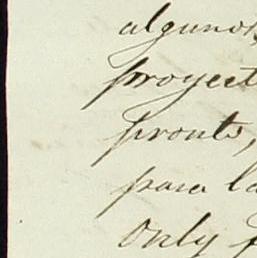 algunos
proyect
pronto,
para la
only f